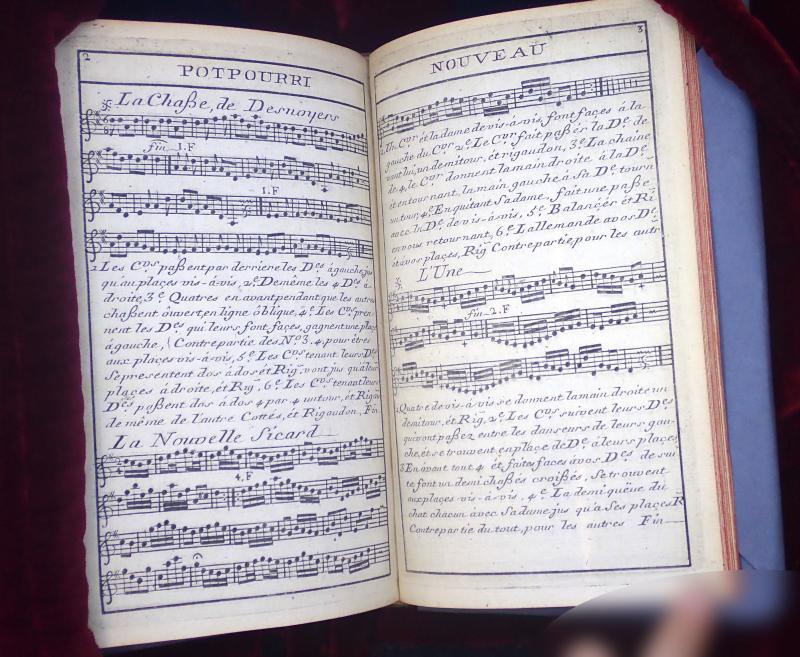 2
POTPOURRI
La Chaße, de Desnoyers
fin 1.F
1.F
1. Les C.vrs paßent par derriere les D.es à gauche, jus
qu'au places vis-à-vis, 2.e De même les 4 D.es à
droite, 3.e Quatres en avant pendant que les autres
chaßent ouvert en ligne òblique, 4.e Les C.vrs pren-
nent les D.es qui leurs font faces, gagnent une place
à gauche, (Contrepartie des N.o 3. 4, pour étres
aux places vis-à-vis, 5.e Les C.vrs tenant leurs D.es
Se présentent dos à dos ét Rig.n vont jus qu'à leurs
places à droite, ét Rig, 6.e Les C.vrs tenant leurs
D.es paßent dos à dos 4 par 4 un tour, ét Rigau
de même de l'autre Cottés, ét Rigaudon, Fin
La Nouvelle Sicard
4.F
3
NOUVEAU
1. Un C.vr ét la dame de vis-à-vis font faces à la
gauche du C.vr 2.e Le C.vr fait paßér la D.e de
vant lui, un demi tour, ét rigaudon, 3.e La chaine
de 4, le C.vr donnent la main droite à la D.e
ét en tournant, la main gauche à Sa D.e tourn
un tour, 4.e En quitant Sa dame, fait une paße
avec la D.e de vis-à-vis, 5.e Balançér ét Ri
en vous retournant, 6.e L'allemande a vos D.e
ét à vos places, Rig. Contrepartie, pour les autr
L'Une
fin 2.F
1. Quatre de vis-à-vis se donnent la main droite un
demi tour, ét Rig, 2.e Les C.vrs suivent leurs D.es
qui vont paßez entre les danseurs de leurs gau-
che, ét se trouvent en plaçe de D.e à leurs places,
3 En avant tout 4 ét faites faces à vos D.es de sui
te font un demi chaßés croißés, Se trouvent
aux places vis-à-vis, 4.e La demi queüe du
chat chacun avec Sa dame, jus qu'a Ses places R
Contrepartie du tout, pour les autres Fin